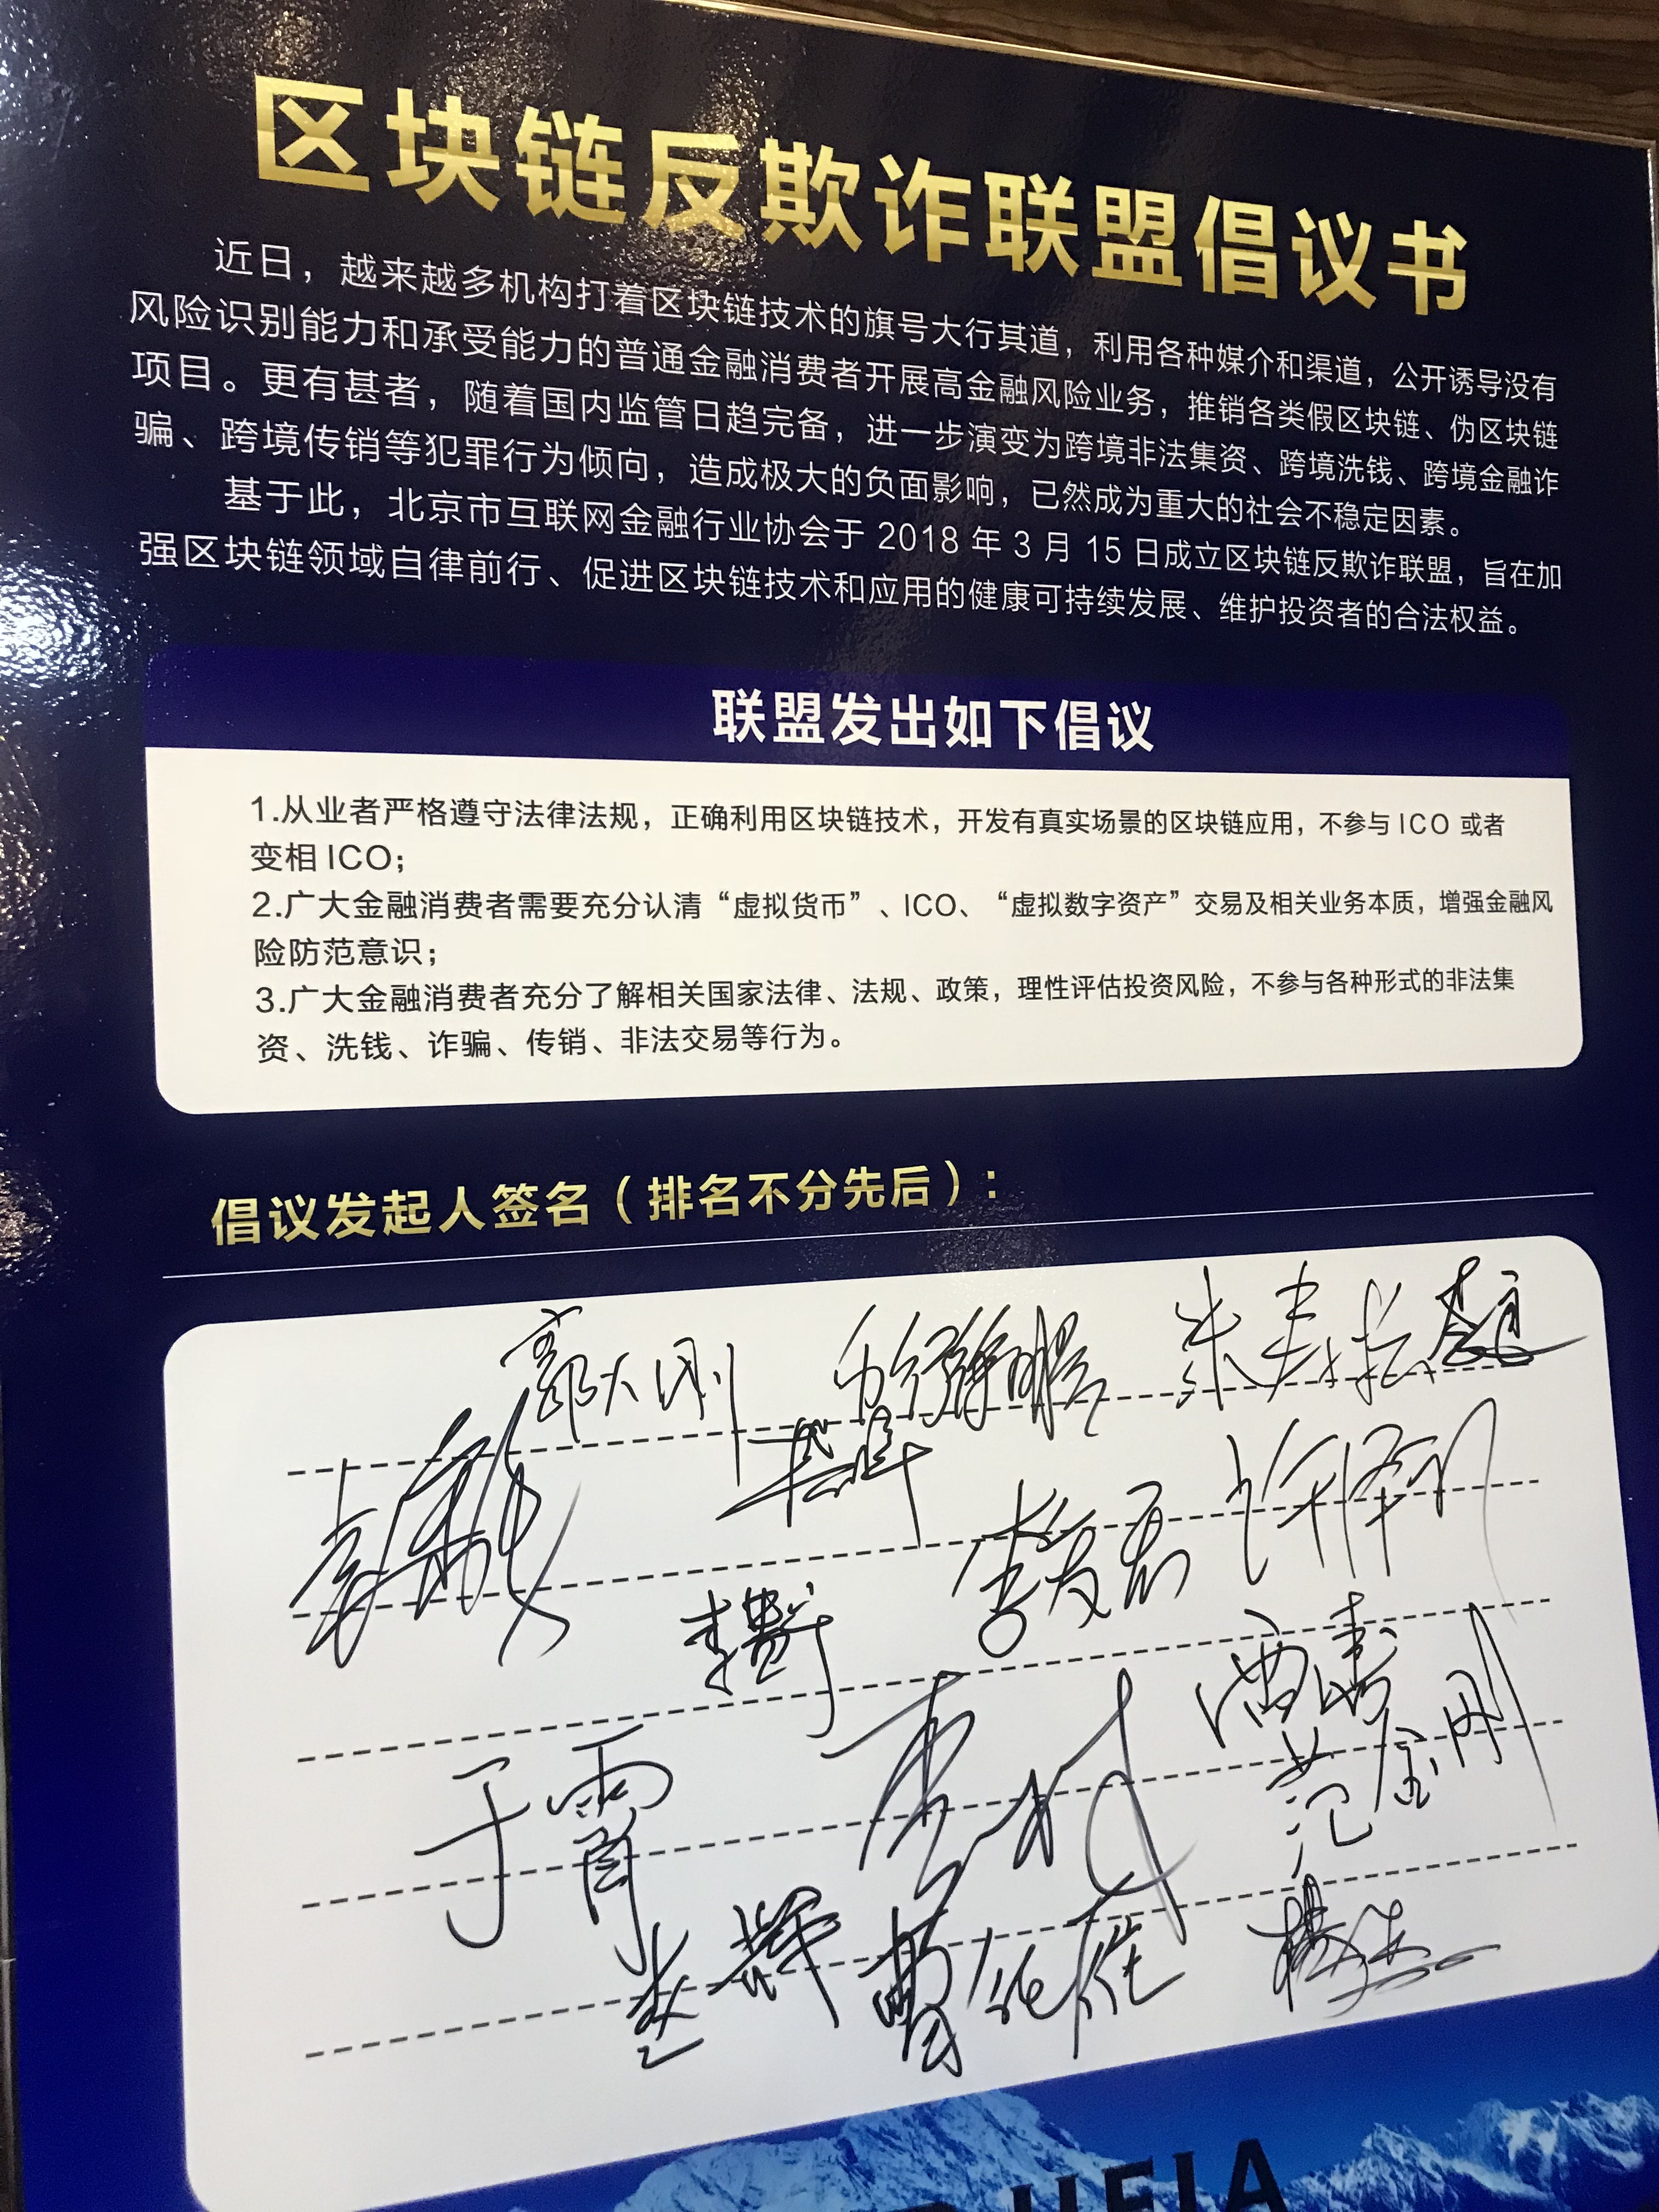 区块链反欺诈联盟倡议书
近日，越来越多机构打着区块链技术的旗号大行其道，利用各种媒介和渠道，公开诱导没有
风险识别能力和承受能力的普通金融消费者开展高金融风险业务，推销各类假区块链、伪区块链
项目。更有甚者，随着国内监管日趋完备，进一步演变为跨境非法集资、跨境洗钱、跨境金融诈
骗、跨境传销等犯罪行为倾向，造成极大的负面影响，已然成为重大的社会不稳定因素。
基于此，北京市互联网金融行业协会于 2018 年 3 月 15 日成立区块链反欺诈联盟，旨在加
强区块链领域自律前行、促进区块链技术和应用的健康可持续发展、维护投资者的合法权益。
联盟发出如下倡议
1.从业者严格遵守法律法规，正确利用区块链技术，开发有真实场景的区块链应用，不参与 ICO 或者
变相 ICO；
2.广大金融消费者需要充分认清“虚拟货币”、ICO、“虚拟数字资产”交易及相关业务本质，增强金融风
险防范意识；
3.广大金融消费者充分了解相关国家法律、法规、政策，理性评估投资风险，不参与各种形式的非法集
资、洗钱、诈骗、传销、非法交易等行为。
倡议发起人签名（排名不分先后）：
郭大刚
于霄
范金刚